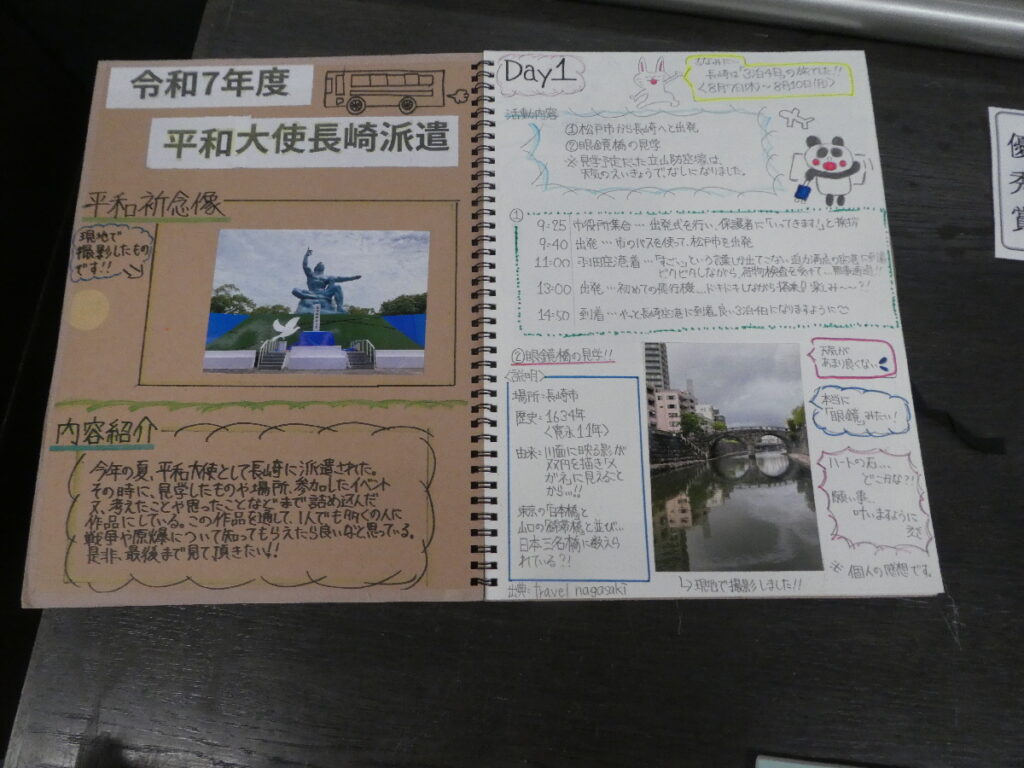 令和7年度
平和大使長崎派遣
平和祈念像
現地で
撮影したもの
です!!
内容紹介
今年の夏、平和大使として長崎に派遣された。
その時に、見学したものや場所、参加したイベント
又、考えたことや思ったことなどまで詰め込んだ
作品にしている。この作品を通して、1人でも多くの人に
戦争や原爆について知ってもらえたら良いなと思っている。
是非、最後まで見て頂きたい!!
Day1
ちなみに…
長崎は「3泊4日」の旅でした!!
<8月7日(木)〜8月10日(日)>
活動内容
①松戸市から長崎へと出発
②眼鏡橋の見学
※見学予定だった立山防空壕は、
天気のえいきょうでなしになりました。
①
9:25 市役所集合…出発式を行い、保護者に「いってきます!」と挨拶
9:40 出発…市のバスを使って、松戸市を出発
11:00 羽田空港着…「すごい」という言葉しか出てこない迫力満点の空港に到着
ビクビクしながら、荷物検査を受けて…無事通過!!
13:00 出発…初めての飛行機…ドキドキしながら搭乗♪楽しみ〜〜?!
14:50 到着…やっと長崎空港に到着。良い3泊4日になりますように♡
②眼鏡橋の見学!!
<説明>
場所:長崎市
歴史:1634年
<寛永11年>
由来:川面に映る影が
双円を描き「メ
ガネ」に見えること
から…!!
東京の「日本橋」と
山口の「錦帯橋」と並び…
日本三名橋に数えら
れている?!
出典:travel nagasaki
↳現地で撮影しました!!
天気が
あまり良くない
本当に
「眼鏡」みたい!
ハートの石…
どこかな?!
願い事…
叶いますように
※個人の感想です。
優秀賞